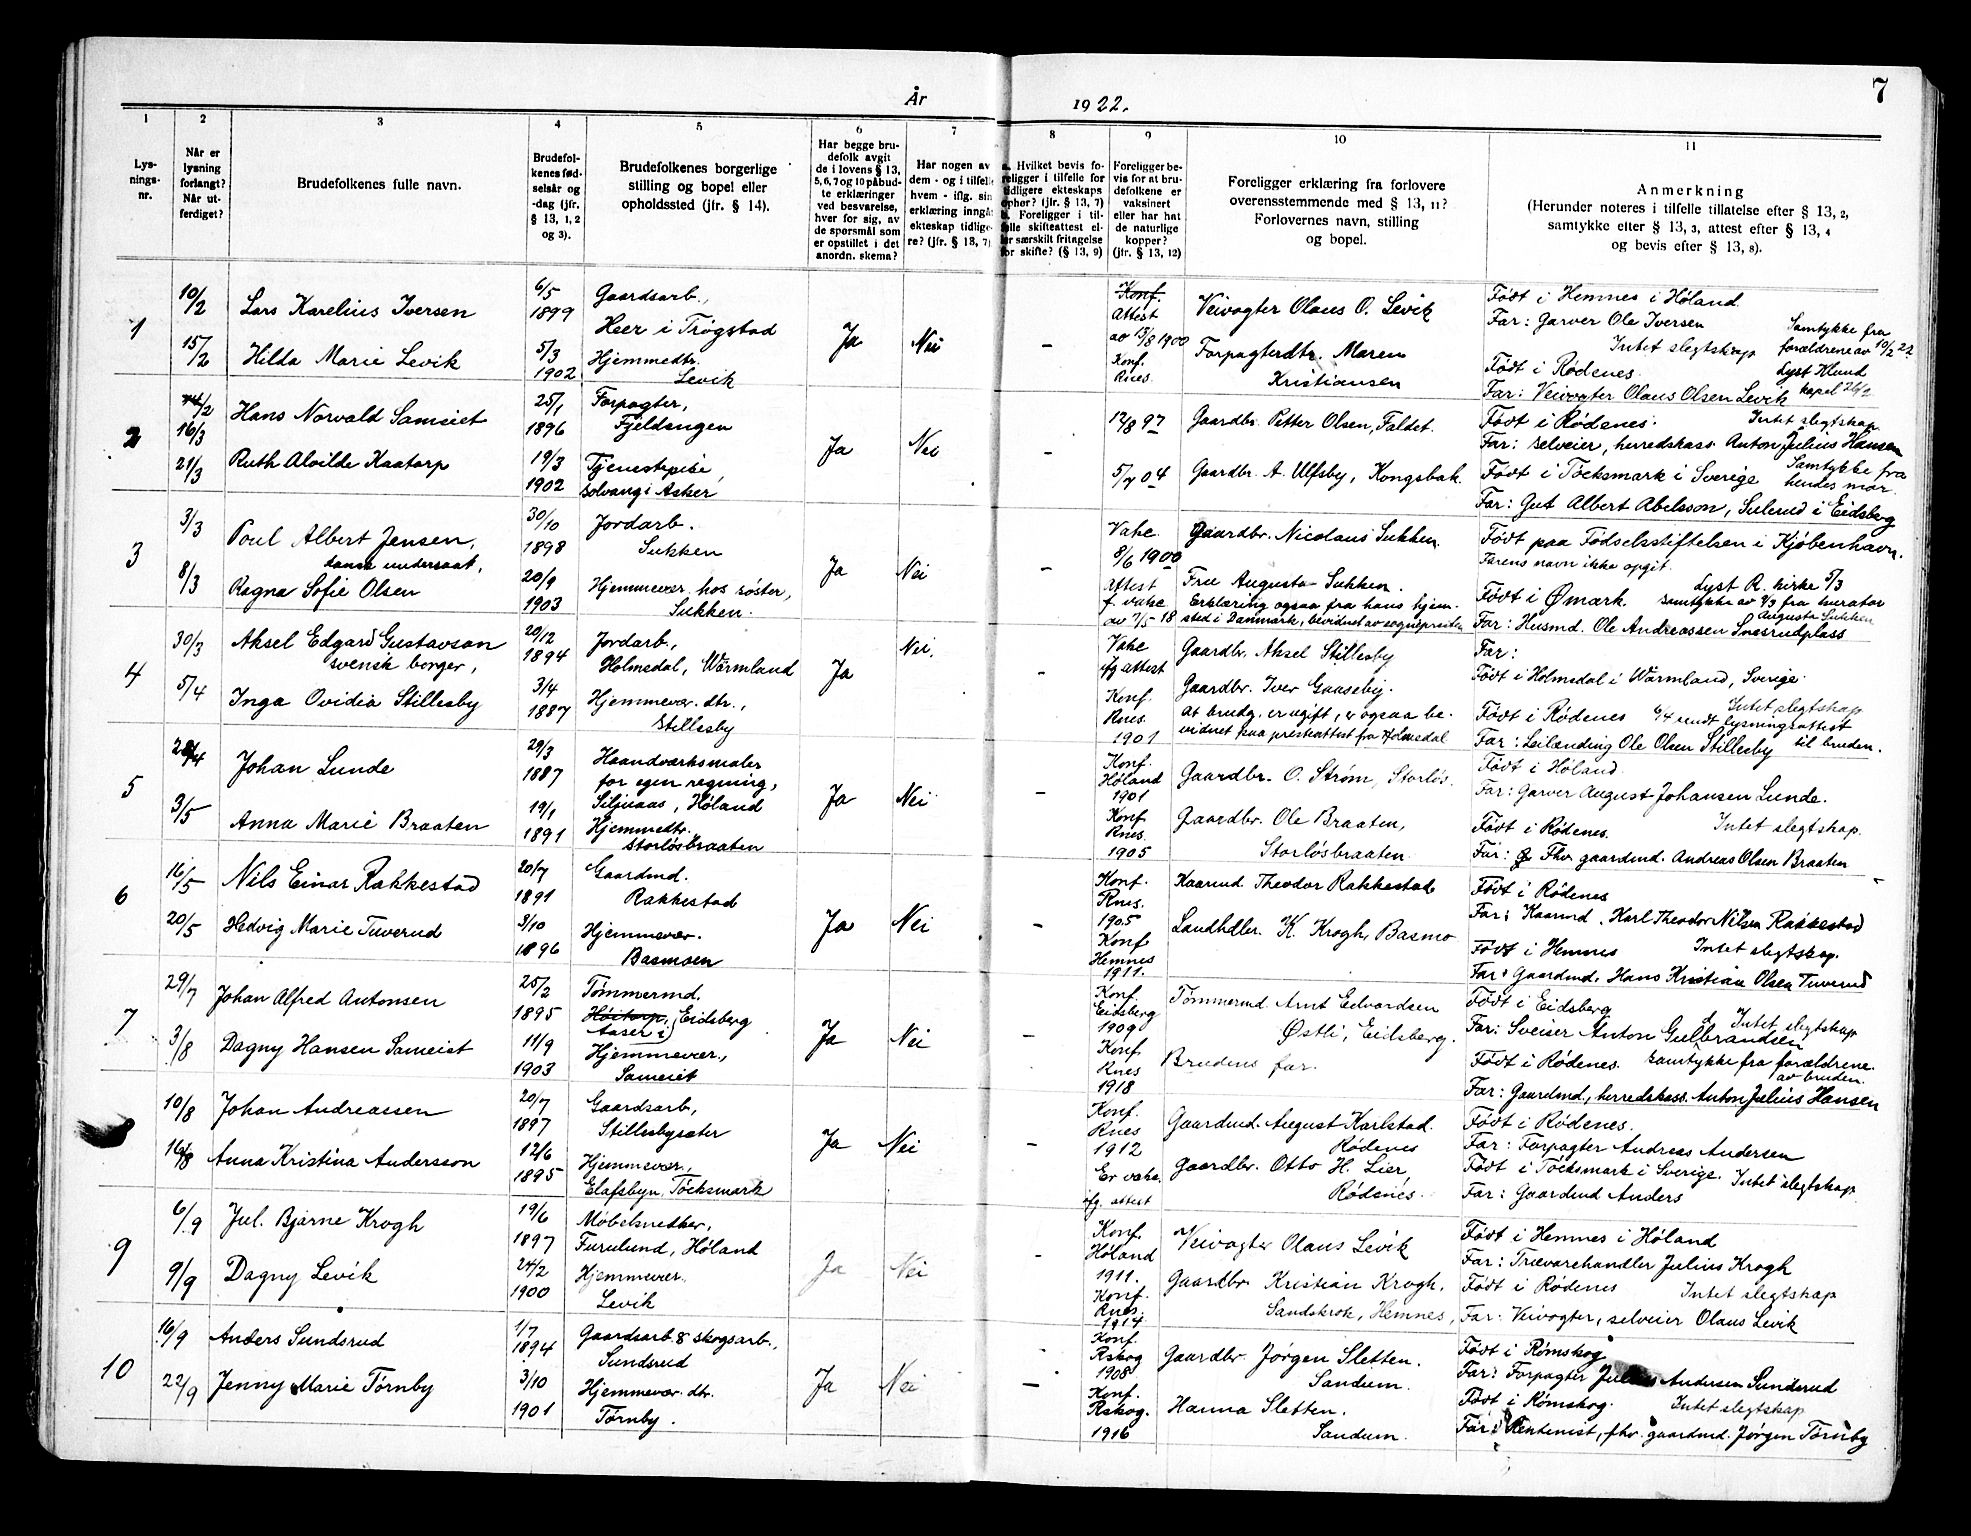 7
År 1922.
1 2 3 4 5 6 7 8 9 10 11
Lys-
nings-
nr.
Når er
lysning
forlangt?
Når ut-
ferdiget?
Brudefolkenes fulle navn.
Brudefol-
kenes fød-
selsår og
-dag (jfr.
§ 13, 1, 2
og 3).
Brudefolkenes borgerlige
stilling og bopel eller
opholdssted (jfr. § 14).
Har begge bru-
defolk avgit
de i lovens § 13,
5, 6, 7 og 10 påbud-
te erklæringer
ved besvarelse,
hver for sig, av
de spørsmål som
er opstillet i det
anordn. skema?
Har nogen av
dem - og i tilfelle
hvem - iflg. sin
erklæring inngåt
ekteskap tidlige-
re? (jfr. § 13, 7)
a. Hvilket bevis fo-
religger i tilfelle for
tidligere ekteskaps
ophør? (jfr. § 13, 7)
b. Foreligger i til-
felle skifteattest el-
ler særskilt fritagelse
for skifte? (§ 13, 9)
Foreligger be-
vis for at bru-
defolkene er
vaksinert
eller har hat
de naturlige
kopper?
(jfr. § 13, 12)
Foreligger erklæring fra forlovere
overensstemmende med § 13, 11?
Forlovernes navn, stilling
og bopel.
Anmerkning
(Herunder noteres i tilfelle tillatelse efter § 13, 2,
samtykke efter § 13, 3, attest efter § 13, 4
og bevis efter § 13, 8).
1
10/2
15/2
Lars Karelius Iversen
Hilda Marie Levik
6/5
1899
5/3
1902
Gaardsarb.,
Heer i Trøgstad
Hjemmedtr.
Levik
Ja
Nei
-
Konf.
Attest
av 13/8 1900
Konf.
Rnes.
Veivogter Olaus O. Levik
Forpagterdtr. Maren
Kristiansen
Født i Hemnes i Høland
Far: Garver Ole Iversen
Intet slegtskap
Samtykke fra
forældrene av 10/2 22
Født i Rødenes.
Lyst Klund
kapel 26/2
Far: Veivogter Olaus Olsen Levik
2
/2
16/3
21/3
Hans Norvald Sameiet
Ruth Alvilde Kaatorp
25/1
1896
19/3
1902
Forpagter,
Fjeldengen
Tjenestepike
Solvang i Asker
Ja
Nei
-
12/8 97
5/7 04
Gaardbr. Petter Olsen, Faldet.
Gaardbr. A. Ulfsby, Kongsbak.
Født i Rødenes.
Intet slegtskap
Far: selveier, herredskass. Anton Julius Hansen
Født i Töcksmark i Sverige
Samtykke fra
hendes mor
Far: Gut Albert Abelsson, Sulerud i Eidsberg
3
3/3
8/3
Poul Albert Jensen,
dansk undersaat,
Ragna Sofie Olsen
30/10
1898
20/9
1903
Jordarb.
Sukken
Hjemmevær. hos søster,
Sukken.
Ja
Nei
-
Vake
8/6 1900
Attest
f. vake
av 7/5 18
Gaardbr. Nicolaus Sukken.
Fru Augusta Sukken.
Erklæring ogsaa fra hans hjem-
sted i Danmark, bevidnet av sogneprsten
Født paa Fødselsstiftelsen i Kjøbenhavn.
Farens navn ikke opgit.
Lyst R. kirke 5/3
Født i Ømark.
Samtykke av 2/3 fra kurator
Augusta Sukken
Far: Husmd. Ole Andreassen Snesrudplass
4
30/3
5/4
Aksel Edgard Gustavson
svensk borger,
Inga Ovidia Stillesby
20/2
1894
3/4
1887
Jordarb.,
Holmedal, Wärmland
Hjemmevær. dtr.,
Stillesby
Ja
Nei.
-
Vake
ifg attest
Konf.
Rnes.
1901
Gaardbr. Aksel Stillesby
Gaardbr. Iver Gaaseby.
At brudg. er ugift, er ogsaa be-
vidnet paa presteattest fra Holmedal
Far:
Født i Holmedal i Wärmland, Sverige.
Intet slegtskap
Født i Rødenes
6/4 sendt lysningsattest
til bruden.
Far: Leilending Ole Olsen Stillesby
5
/4
3/5
Johan Lunde
Anna Marie Braaten
29/3
1887
19/1
1891
Haandværksmaler
for egen regning,
Siljuaas, Høland
Hjemmedtr.
Storløsbraaten
Ja
Nei
-
Konf.
Høland
1901
Konf
Rnes.
1905
Gaardbr. O. Strøm, Storløs.
Gaardbr. Ole Braaten,
Storløsbraaten
Født i Høland.
Far: Garver August Johansen Lunde.
Født i Rødenes.
Intet slegtskap.
Far: Fhv gaardmd. Andreas Olsen Braaten
6
16/5
20/5
Nils Einar Rakkestad
Hedvig Marie Tuverud
20/7
1891
3/10
1896
Gaardmd.
Rakkestad
Hjemmevær.
Basmoen
Ja
Nei
-
Konf.
Rnes.
1905
Konf
Hemnes
1911.
Kaarmd. Theodor Rakkestad
Landhdler. K. Krogh, Basmo
Født i Rødenes
Far: Kaarmd. Karl Theodor Nilsen Rakkestad
Født i Hemnes
Intet slegtskap.
Far: Gaardmd. Hans Kristian Olsen Tuverud
7
29/7
3/8
Johan Alfred Antonsen
Dagny Hansen Sameiet
25/2
1895
11/9
1903
Tømmermd.
Høitorp, Eidsberg
Aaser i
Hjemmevær.,
Sameiet
Ja
Nei
-
Konf.
Eidsberg
1909
Konf.
Rnes
1918
Tømmermd. Arnt Edvardsen
Østli, Eidsberg.
Brudens far.
Født i Eidsberg
Intet slegtskap
Far: Sveiser Anton Gulbrandsen
Født i Rødenes.
Samtykke fra forældrene
av bruden.
Far: Gaardmd., herredskass. Anton Julius Hansen
10/8
16/8
Johan Andreassen
Anna Kristina Andersson
20/7
1897
12/6
1895
Gaardsarb,
Stillesbysæter
Hjemmevær.,
Elafsbyn, Töcksmark
Ja
Nei
-
Konf.
Rnes
1912
Er vake.
ifg. attest
Gaardmd. August Karlstad.
Rødenes
Gaardbr. Otto H. Lier,
Rødenes.
Født i Rødenes.
Far: Forpagter Andreas Andersen
Født i Töcksmark i Sverige.
Intet slegtskap
Far: Gaardmd Anders
9
6/9
9/9
Jul. Bjarne Krogh
Dagny Levik
19/6
1897
24/2
1900
Møbelsnedker,
Furulund, Høland
Hjemmevær.
Levik
Ja
Nei
-
Konf.
Høland
1911.
Konf.
Rnes.
1914
Veivogter Olaus Levik
Gaardbr. Kristian Krogh,
Sandskrok, Hemnes,
Født i Hemnes i Høland
Far: Trævarehandler Julius Krogh
Født i Rødenes
Intet slegtskap
Far: Veivogter, selveier Olaus Levik
10
16/9
22/9
Anders Sundsrud
Jenny Marie Tørnby
1/7
1894
3/10
1901
Gaardsarb & skogsarb.,
Sundsrud
Hjemmevær. dtr.
Tørnby.
Ja
Nei
-
Konf.
Rskog
1908
Konf.
Rskog.
1916
Gaardbr. Jørgen Sletten.
Sandum.
Hanna Sletten.
Sandum.
Født i Rømskog
Far: Forpagter Julius Andersen Sundsrud
Født i Rømskog.
Intet slegtskap
Far: Rentenist, fhv. gaardmd. Jørgen Tørnby